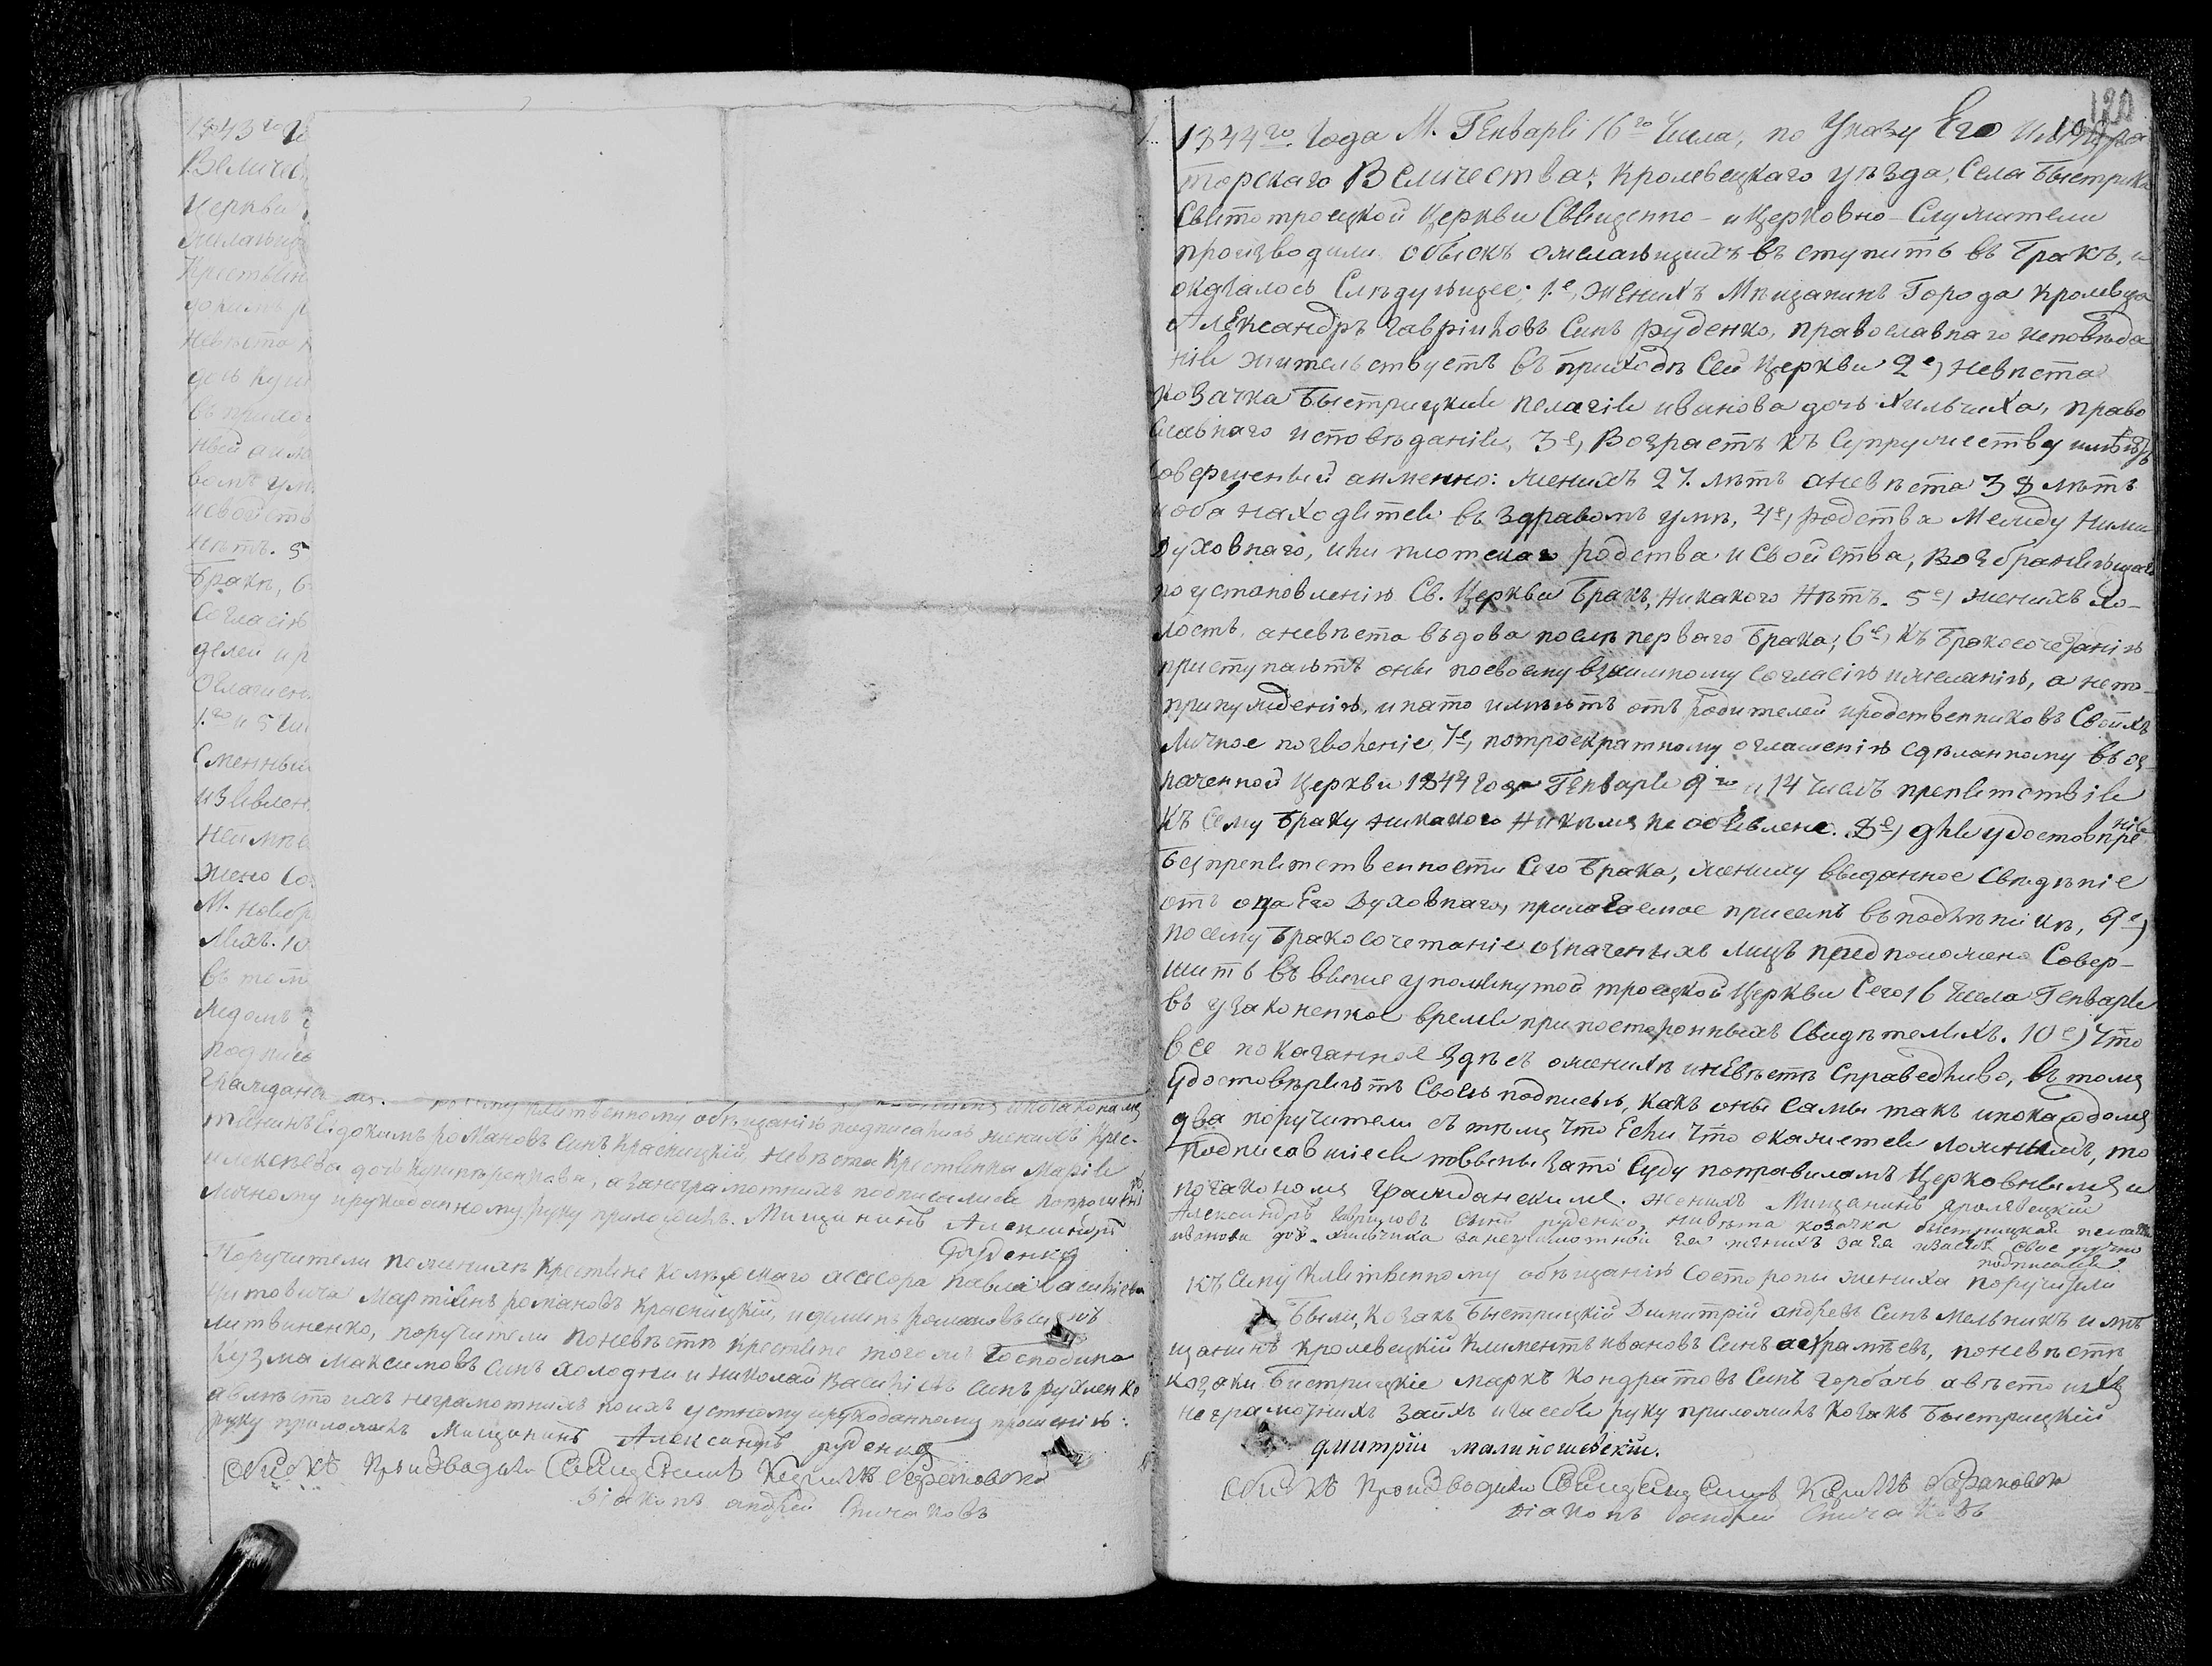 1843 го
Величес
Церкви
Желающ
Крестьян
Невѣста
дочь
въ
ный а им
вомъ ум
и свойств
нѣтъ. 5
Бракъ, 6
Согласію
делей и р
Оглашен
1го и 5 чи
изъявлен
жено Со
М. Ноябр
Ляхъ. 10
въ том
подпис
Граждан
клятвенному обѣщанію подписались женихъ Крес-
тянинъ Евдокимъ Романовъ синъ Красницкій, невѣста крестьянка Марія
дочь а за неграмотнихъ подписалися по прошенію
личному и рукоданному руку приложилъ. Мищанинъ Александръ
Руденко
Поручители по женихѣ крестяне асесора Павла Васильева
Мартинъ Романовъ Красницкій, и Романовъ синъ
Литвиненко, поручители по невѣстѣ крестяне того жъ Господина
Кузма Максимовъ синъ Холодни и Николай Василіевъ синъ
а вмѣсто ихъ неграмотнихъ по ихъ устному и рукоданному прошенію
руку приложилъ Мищанинъ Александръ Руденко
Обискъ Произвадили Священникъ
Діаконъ Андрей
120
1844го. Года М. Генваря 16го Числа, по Указу Его Импера
торскаго Величества; Кролевецкаго уѣзда, Села Быстрика
Святотроецкой Церкви Священно- и Церковно-Служители
производили обыскъ о желающихъ въступить въ Бракъ, и
оказалось Слѣдующее: 1.е, женихъ Мѣщанинъ Города Кролевца
Александръ Гавріиловъ Синъ Руденко, православнаго исповѣда
нія жительствуетъ въ приходѣ Сей Церкви 2е) Невѣста
козачка Быстрицкия Пелагія Иванова дочь Хильчиха, право
славнаго исповѣданія, 3е, Возрастъ къ Супружеству имѣютъ
совершенный а именно: женихъ 27. лѣтъ а невѣста 38 лѣтъ
и оба находятся въ здравомъ умѣ, 4е, родства между ними
Духовнаго, или плотскаго родства и Свойства, возбраняющаго
по установленію Св. Церкви Бракъ, никакого нѣтъ. 5е) женихъ хо-
лостъ, а невѣста въдова послѣ перваго Брака; 6е, къ Бракосочетанію
приступаютъ оны по своему взаимному Согласію и желанію, а не по
принужденію, и на то имѣютъ отъ Родителей и родственниковъ Своихъ
Личное позволеніе, 7е, по троекратному оглашенію сдѣланному въ оз
наченной Церкви 1844 года Генваря 9го и 14 чиселъ препятствія
къ Сему Браку никакого никѣмъ не объявлено. 8е) для удостовѣре
нія
безпрепятственности Сего Брака, жениху выданное Свидѣніе
отъ отца Его Духовнаго, прилагаемое при семъ въ подлѣникѣ, 9е)
по сему Бракосочетаніе означеныхъ лицъ предположено Совер-
шить въ вышеупомянутой троецкой Церкви Сего 16 Числа Генваря
въ узаконенное время при постороннныхъ Свидѣтеляхъ. 10е) Что
все показанное здѣсъ о женихѣ и невѣстѣ Справедливо, въ томъ
Удостовѣряютъ Своею подписью, какъ оны Самы такъ и по каждомъ
два поручители съ тѣмъ что Если что окажется ложнымъ, то
Подписавшіеся повыны зато Суду по правиламъ Церковнымъ и
по законамъ Гражданскимъ. женихъ Мищанинъ Кролевецкій
Александръ Гавриловъ Сынъ Руденко, нивѣста козачка Быстрицкая Пелагея
Иванова доч. Хильчиха за неграмотной ея женихъ за ея и за себя своеручно
подписался
къ Сему Клятвенному обѣщанію Состороны жениха поручители
Были, Козакъ Быстрицкій Димитрій Андреевъ Синъ Мельникъ и мѣ
щанинъ Кролевецкій Климентъ Ивановъ Синъ по невѣстѣ
козаки Бистрицкіе Маркъ Кондратовъ Синъ Горбачь а вмѣсто ихъ
неграмотнихъ за ихъ и за себя руку приложилъ Козакъ Быстрицкій
Дмитрій Малиношевскій.
Обискъ Произвадили Священникъ
Діаконъ Андрей